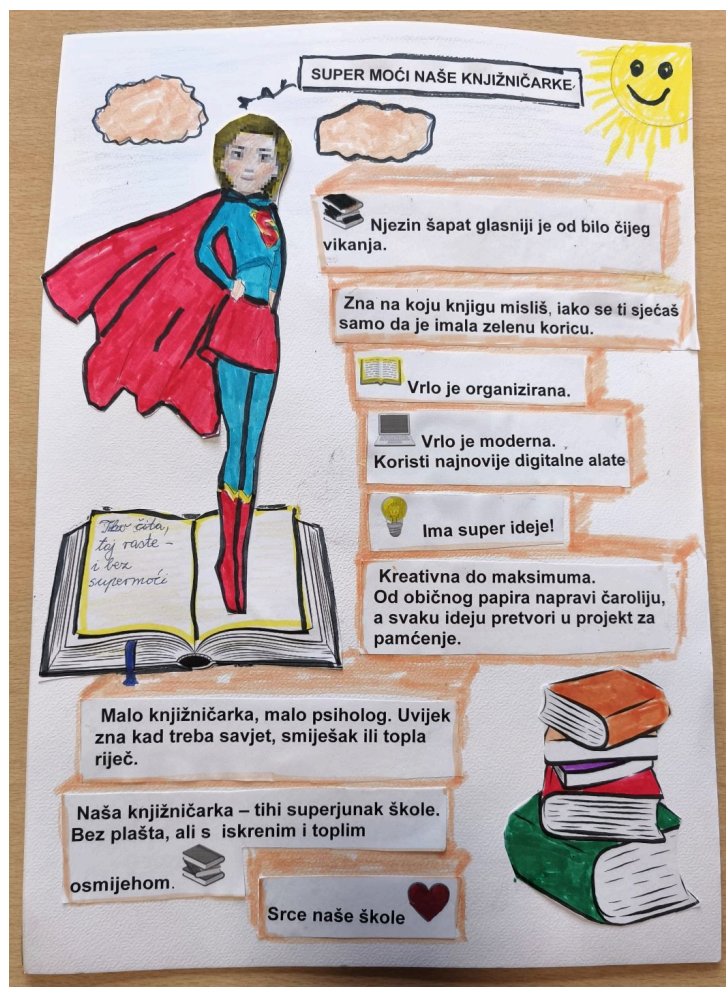 SUPER MOĆI NAŠE KNJIŽNIČARKE
Njezin šapat glasniji je od bilo čijeg
vikanja.
Zna na koju knjigu misliš, iako se ti sjećaš
samo da je imala zelenu koricu.
Vrlo je organizirana.
Vrlo je moderna.
Koristi najnovije digitalne alate
Ima super ideje!
Kreativna do maksimuma.
Od običnog papira napravi čaroliju,
a svaku ideju pretvori u projekt za
pamćenje.
Tko čita,
taj raste -
i bez
supermoći
Malo knjižničarka, malo psiholog. Uvijek
zna kad treba savjet, smiješak ili topla
riječ.
Naša knjižničarka – tihi superjunak škole.
Bez plašta, ali s iskrenim i toplim
osmijehom.
Srce naše škole